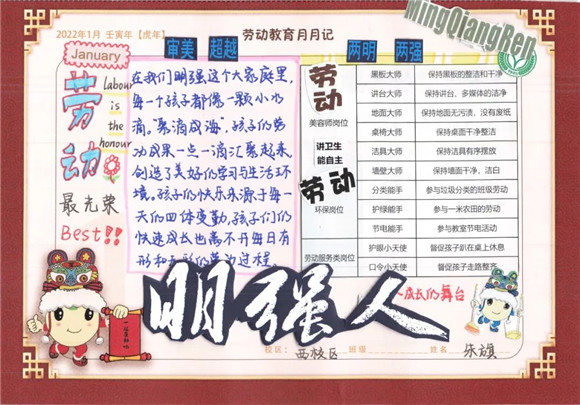 2022年1月 壬寅年【虎年】
劳动教育月月记
MingQiangRen
January
审美 超越
两明 两强
劳动
最光荣
Best!!
labour
is
the
honour
在我们明强这个大家庭里,
每一个孩子都像一颗小水
滴。“聚滴成海”,孩子们劳
动成果一点一滴汇聚起来
创造了美好的学习与生活环
境。孩子们的快乐来源于每一
天的四体变勤,孩子们的
快速成长也离不开每日有
形和无形的劳动过程
劳动
美容师岗位
讲卫生
能自主
劳动
环保岗位
劳动服务类岗位
黑板大师 保持黑板的整洁和干净
讲台大师 保持讲台、多媒体的洁净
地面大师 保持地面无污渍、没有废纸
桌椅大师 保持桌面干净整洁
洁具大师 保持洁具有序摆放
墙壁大师 保持墙面干净,洁白
分类能手 参与垃圾分类的班级劳动
护绿能手 参与一米农田的劳动
节电能手 参与教室节电活动
护眼小天使 督促孩子趴在桌上休息
口令小天使 督促孩子走路整齐
明强人
成长的舞台
校区: 西校区 班级 姓名 朱旗